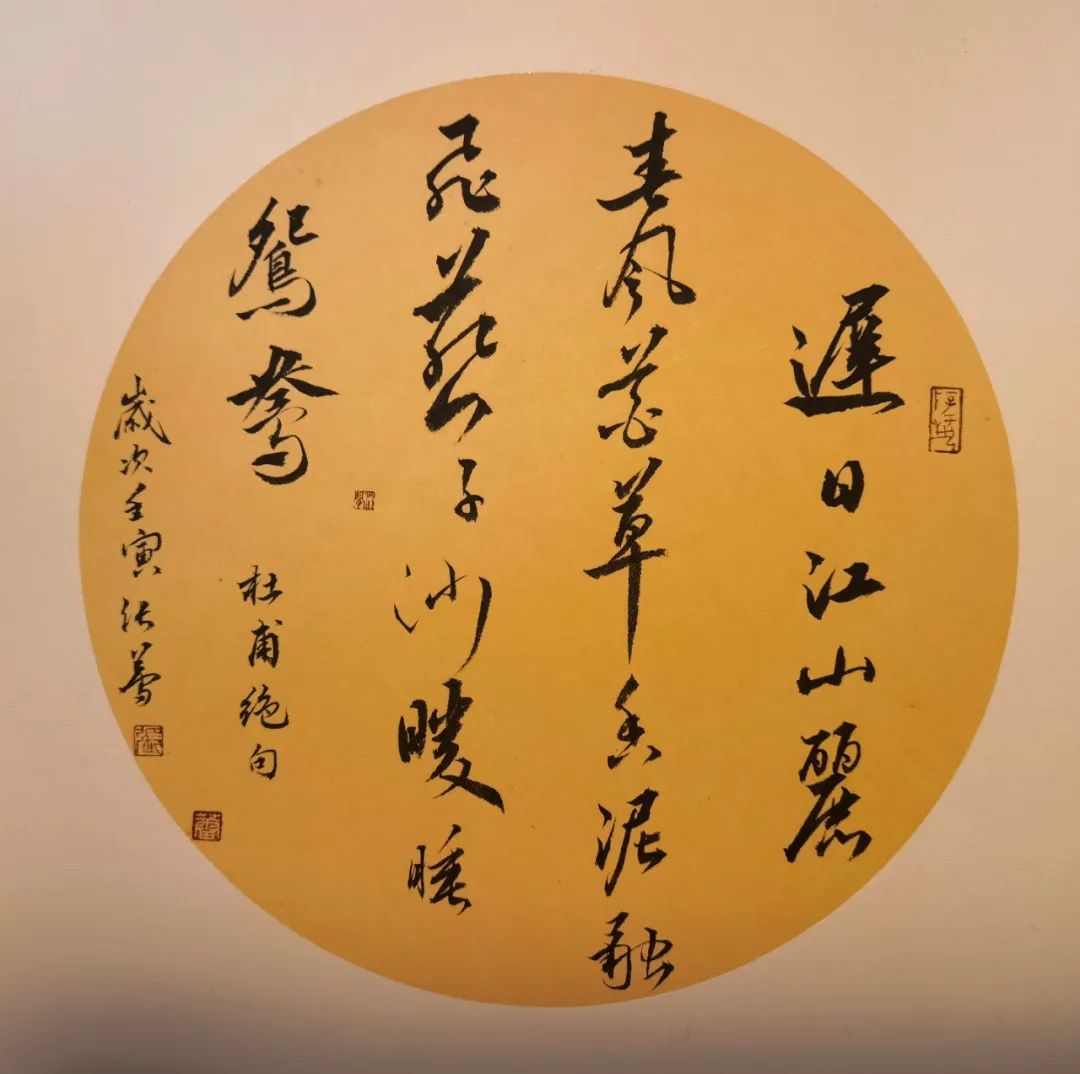 遲日江山麗
春風花草香泥融
飛燕子沙暖睡
鴛鴦 杜甫絕句
歲次壬寅 張
張